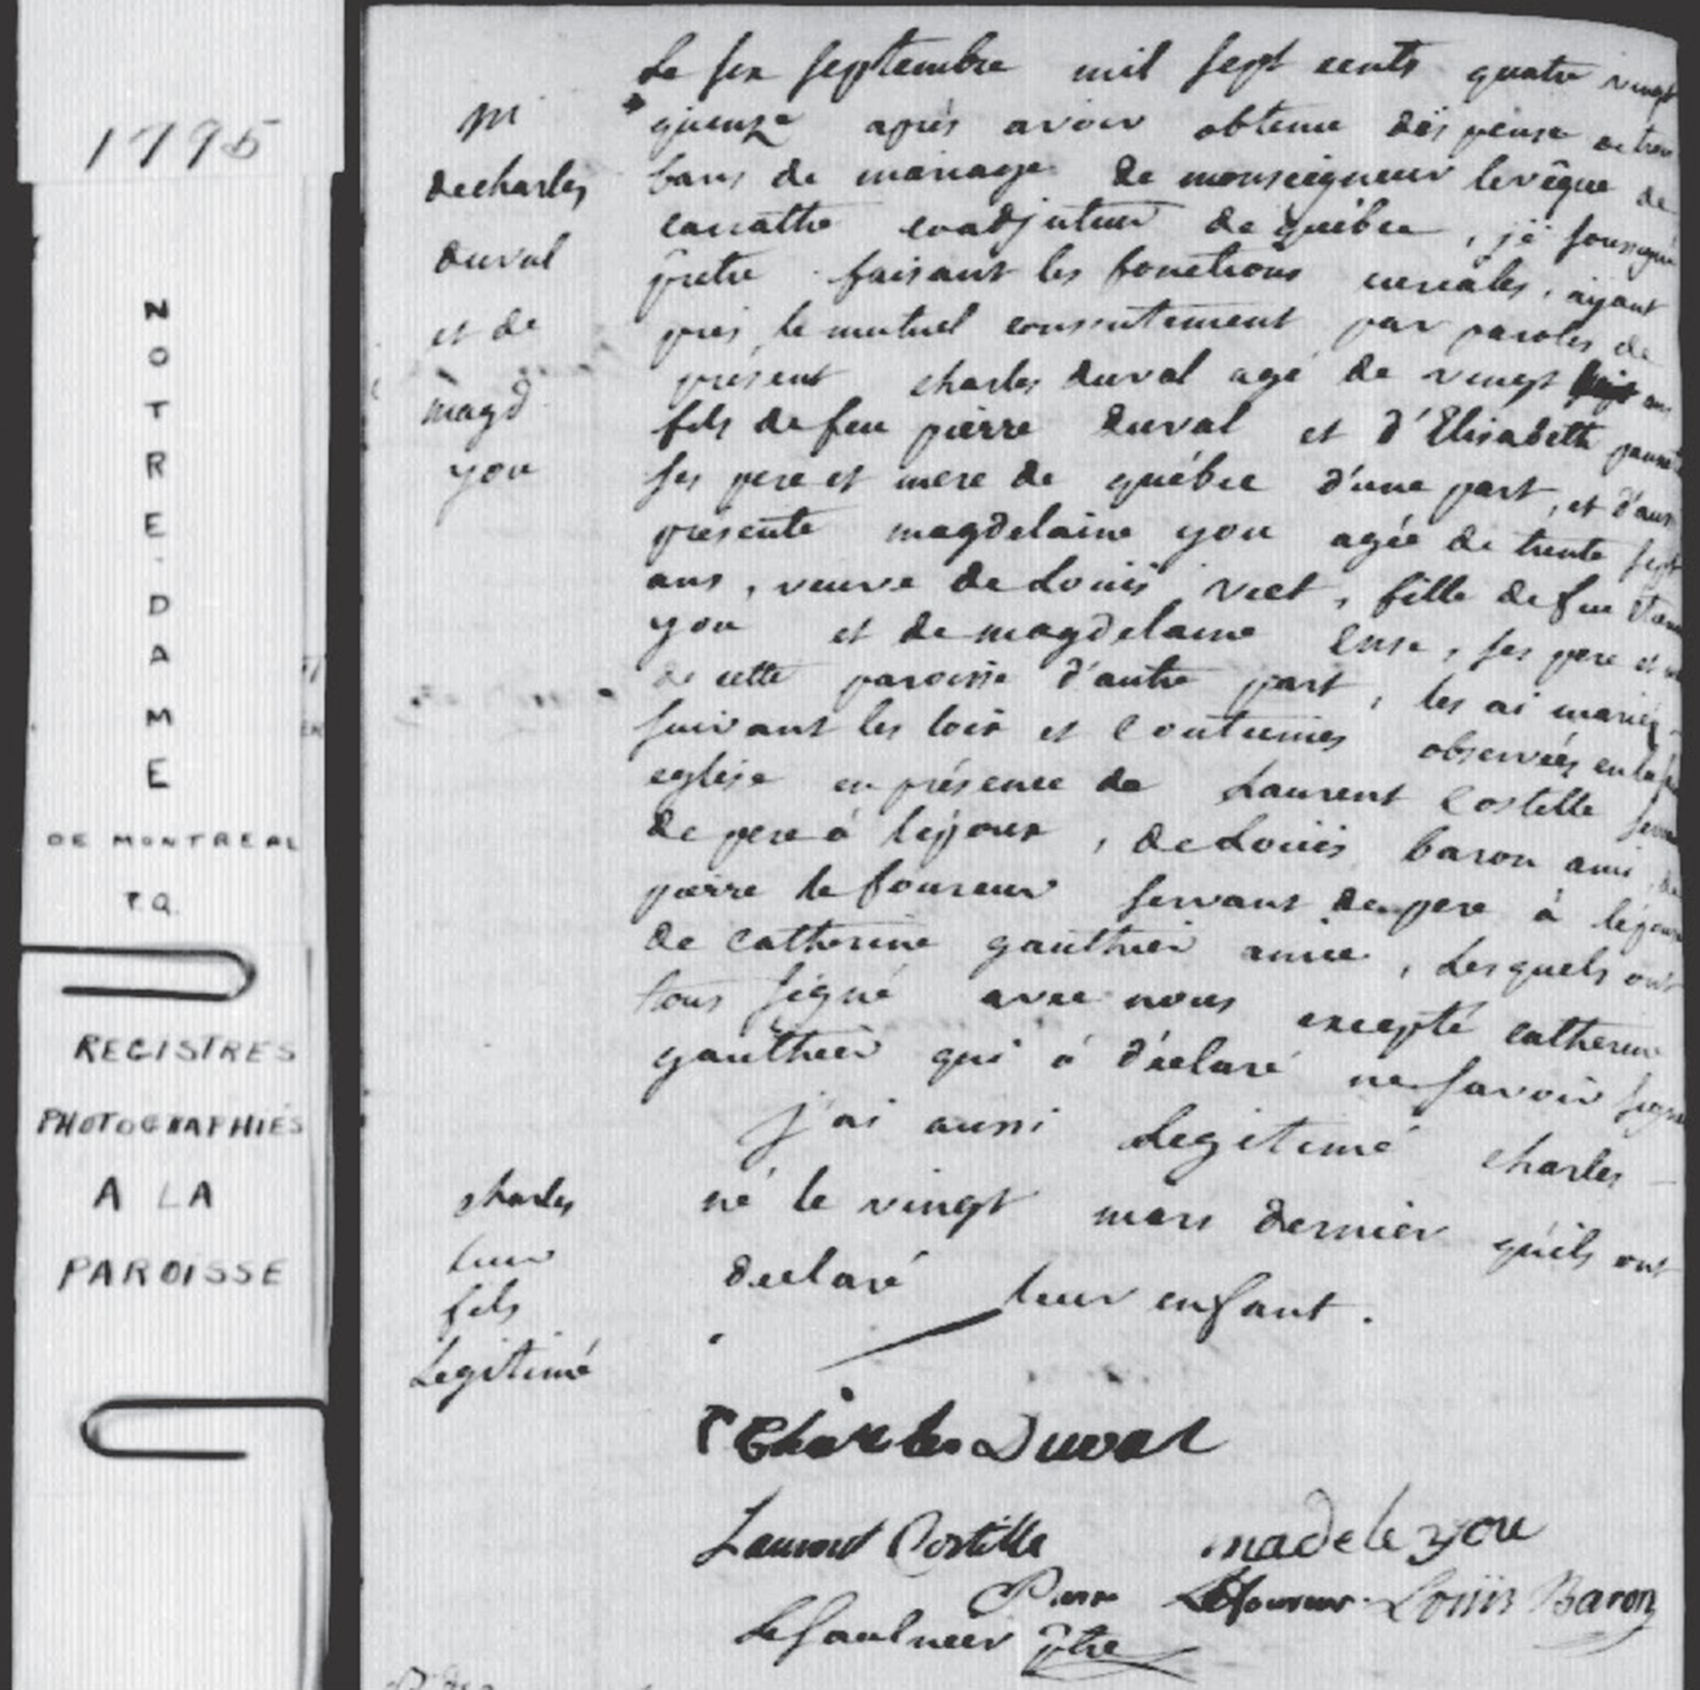 1795
NOTRE-DAME
DE MONTREAL
P.Q.
REGISTRES
PHOTOGRAPHIÉS
A LA
PAROISSE
m
de charles
duval
et de
magd
you
Le six septembre mil sept cents quatre vingt
quinze après avoir obtenu dispense de trois
bans de mariage de monseigneur l'evêque de
canathe coadjuteur de québec, je soussigné
prêtre faisant les fonctions curiales, ayant
pris le mutuel consentement par paroles de
présent charles duval agé de vingt ans
fils de feu pierre duval et d'Elisabeth
ses pere et mere de québec d'une part, et d'autre
présente magdelaine you agée de trente sept
ans, veuve de Louis viet, fille de feu
you et de magdelaine, ses pere et
de cette paroisse d'autre part, les ai mariés
suivant les loix et Coutumes observées en la
eglise en présence de Laurent Costille
de pere à l'époux, de Louis baron ami, de
pierre le foureur servant de pere à l'épouse
de catherine gauthier amie, Lesquels ont
tous signé avec nous excepté catherine
gauthier qui à déclaré ne savoir signer
j'ai aussi Legitimé charles
né le vingt mars dernier qu'ils ont
declaré leur enfant.
charles
leur
fils
Legitimé
Charles Duval
Laurent Costille madele you
Pierre Lefoureur Louiis Baron
LeSaulnier ptre